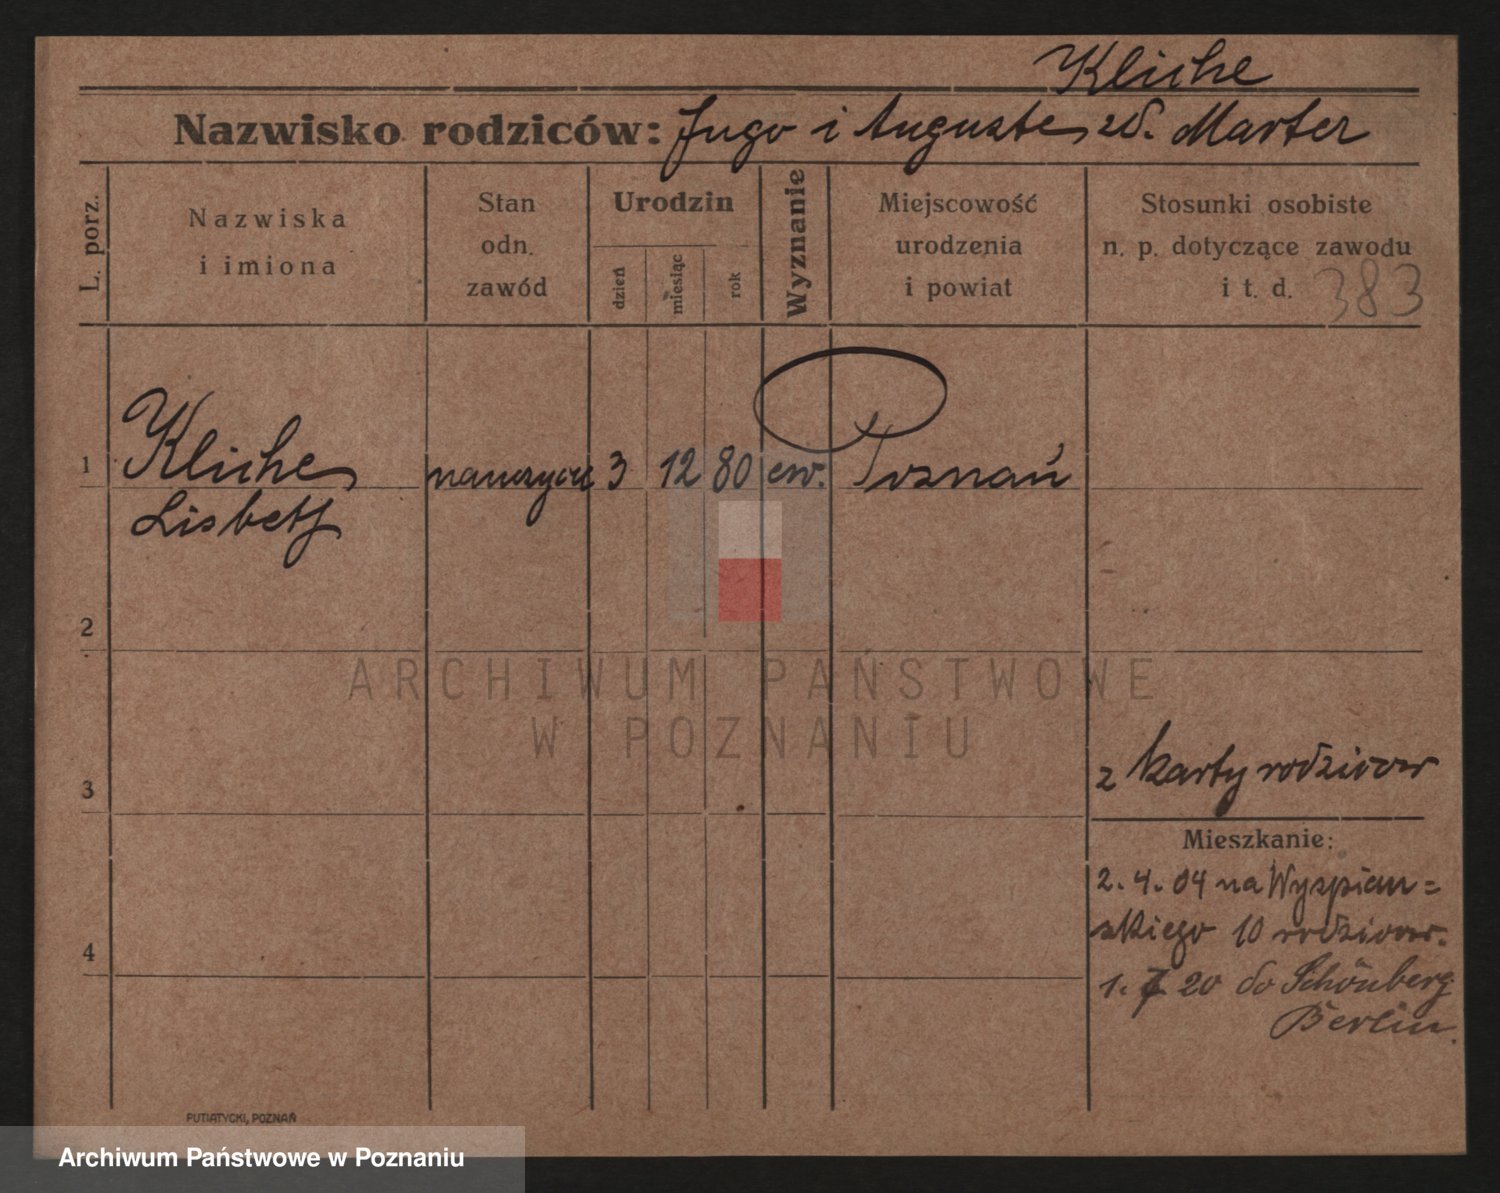 Kliche
Nazwisko rodziców: Jugo i Auguste, zd. Marter
L. porz.
Nazwiska
i imiona
Stan
odn.
zawód
Urodzin
dzień
miesiąc
rok
Wyznanie
Miejscowość
urodzenia
i powiat
Stosunki osobiste
n. p. dotyczące zawodu
i t. d. 383
1 Kliche nauczyciel 3 12 80 ew. Poznań
Lisbeth
2
3
z karty rodziców
Mieszkanie:
2. 4. 04 na Wyspiań=
skiego 10 rodziców.
4
1. 20 do Schönberg
Berlin.
PUTIATYCKI, POZNAŃ
ARCHIWUM PAŃSTWOWE
W POZNANIU
Archiwum Państwowe w Poznaniu